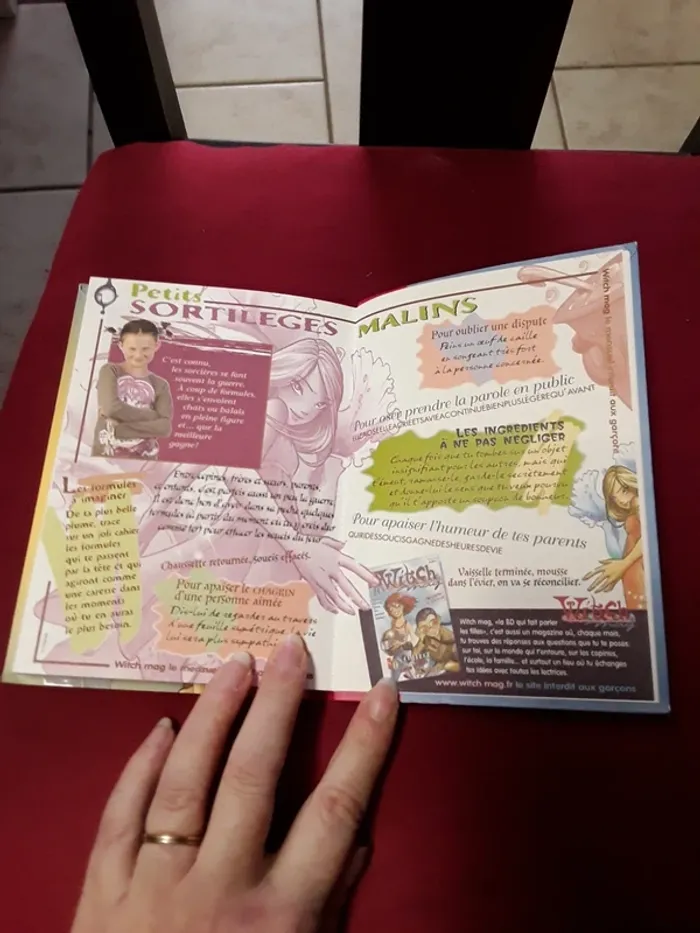 Petits
SORTILEGES
C'est connu,
les sorcières se font
souvent la guerre.
A coup de formules,
elles s'envoient
chats ou balais
en pleine figure
et... que la
meilleure
gagne!
Les formules
à imaginer
De ta plus belle
plume, trace
sur un joli cahier
les formules
qui te passent
par la tête et qui
agiront comme
une caresse dans
les moments
où tu en auras
le plus besoin.
Entre copines, frères et sœurs, parents
et enfants, c'est parfois aussi un peu la guerre.
Il est donc bon d'avoir dans sa poche quelques
formules
Chaussette retournée, soucis effacés.
Pour apaiser le CHAGRIN
d'une personne aimée
Dis-lui de regarder au travers
d'une feuille symétrique, la vie
lui sera plus
Witch mag le
MALINS
Pour oublier une dispute
Peins un œuf de caille
en songeant très fort
à la personne concernée.
Pour oser prendre la parole en public
LES INGRÉDIENTS
À NE PAS NÉGLIGER
Chaque fois que tu tombes sur un objet
insignifiant pour les autres, mais qui
t'émeut, ramasse-le, garde-le secrètement
et donne-lui le sens que tu veux pour
qu'il t'apporte un soupçon de bonheur.
Pour apaiser l'humeur de tes parents
QUIRIDESSOUCISGAGNEDESHEURESDEVIE
Vaisselle terminée, mousse
dans l'évier, on va se réconcilier.
Witch
Witch mag, «la BD qui fait parler
les filles», c'est aussi un magazine où, chaque mois,
tu trouves des réponses aux questions que tu te poses
sur toi, sur le monde qui t'entoure, sur les copines,
l'école, la famille... et surtout un lieu où tu échanges
tes idées avec toutes les lectrices.
www.witch mag.fr le site interdit aux garçons
Witch mag le mensuel interdit aux garçons